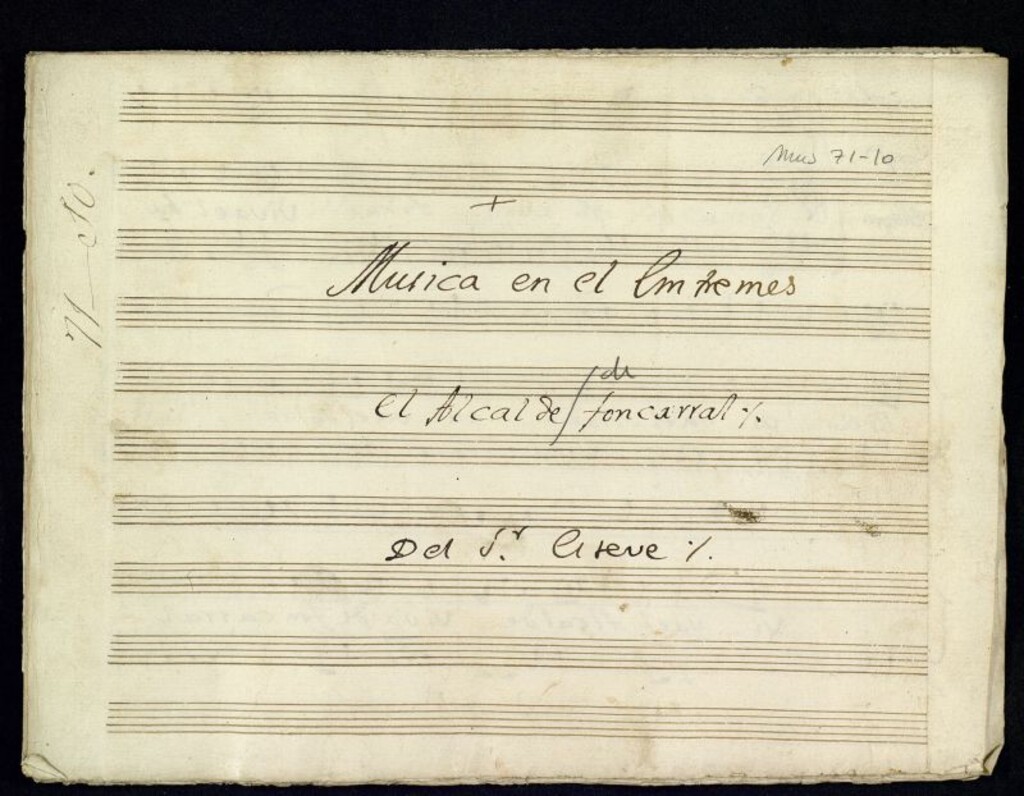 Mus 71-10
71-10.
+
Musica en el Emtremes
El Alcalde de foncarral %.
Del S.r Esteve %.